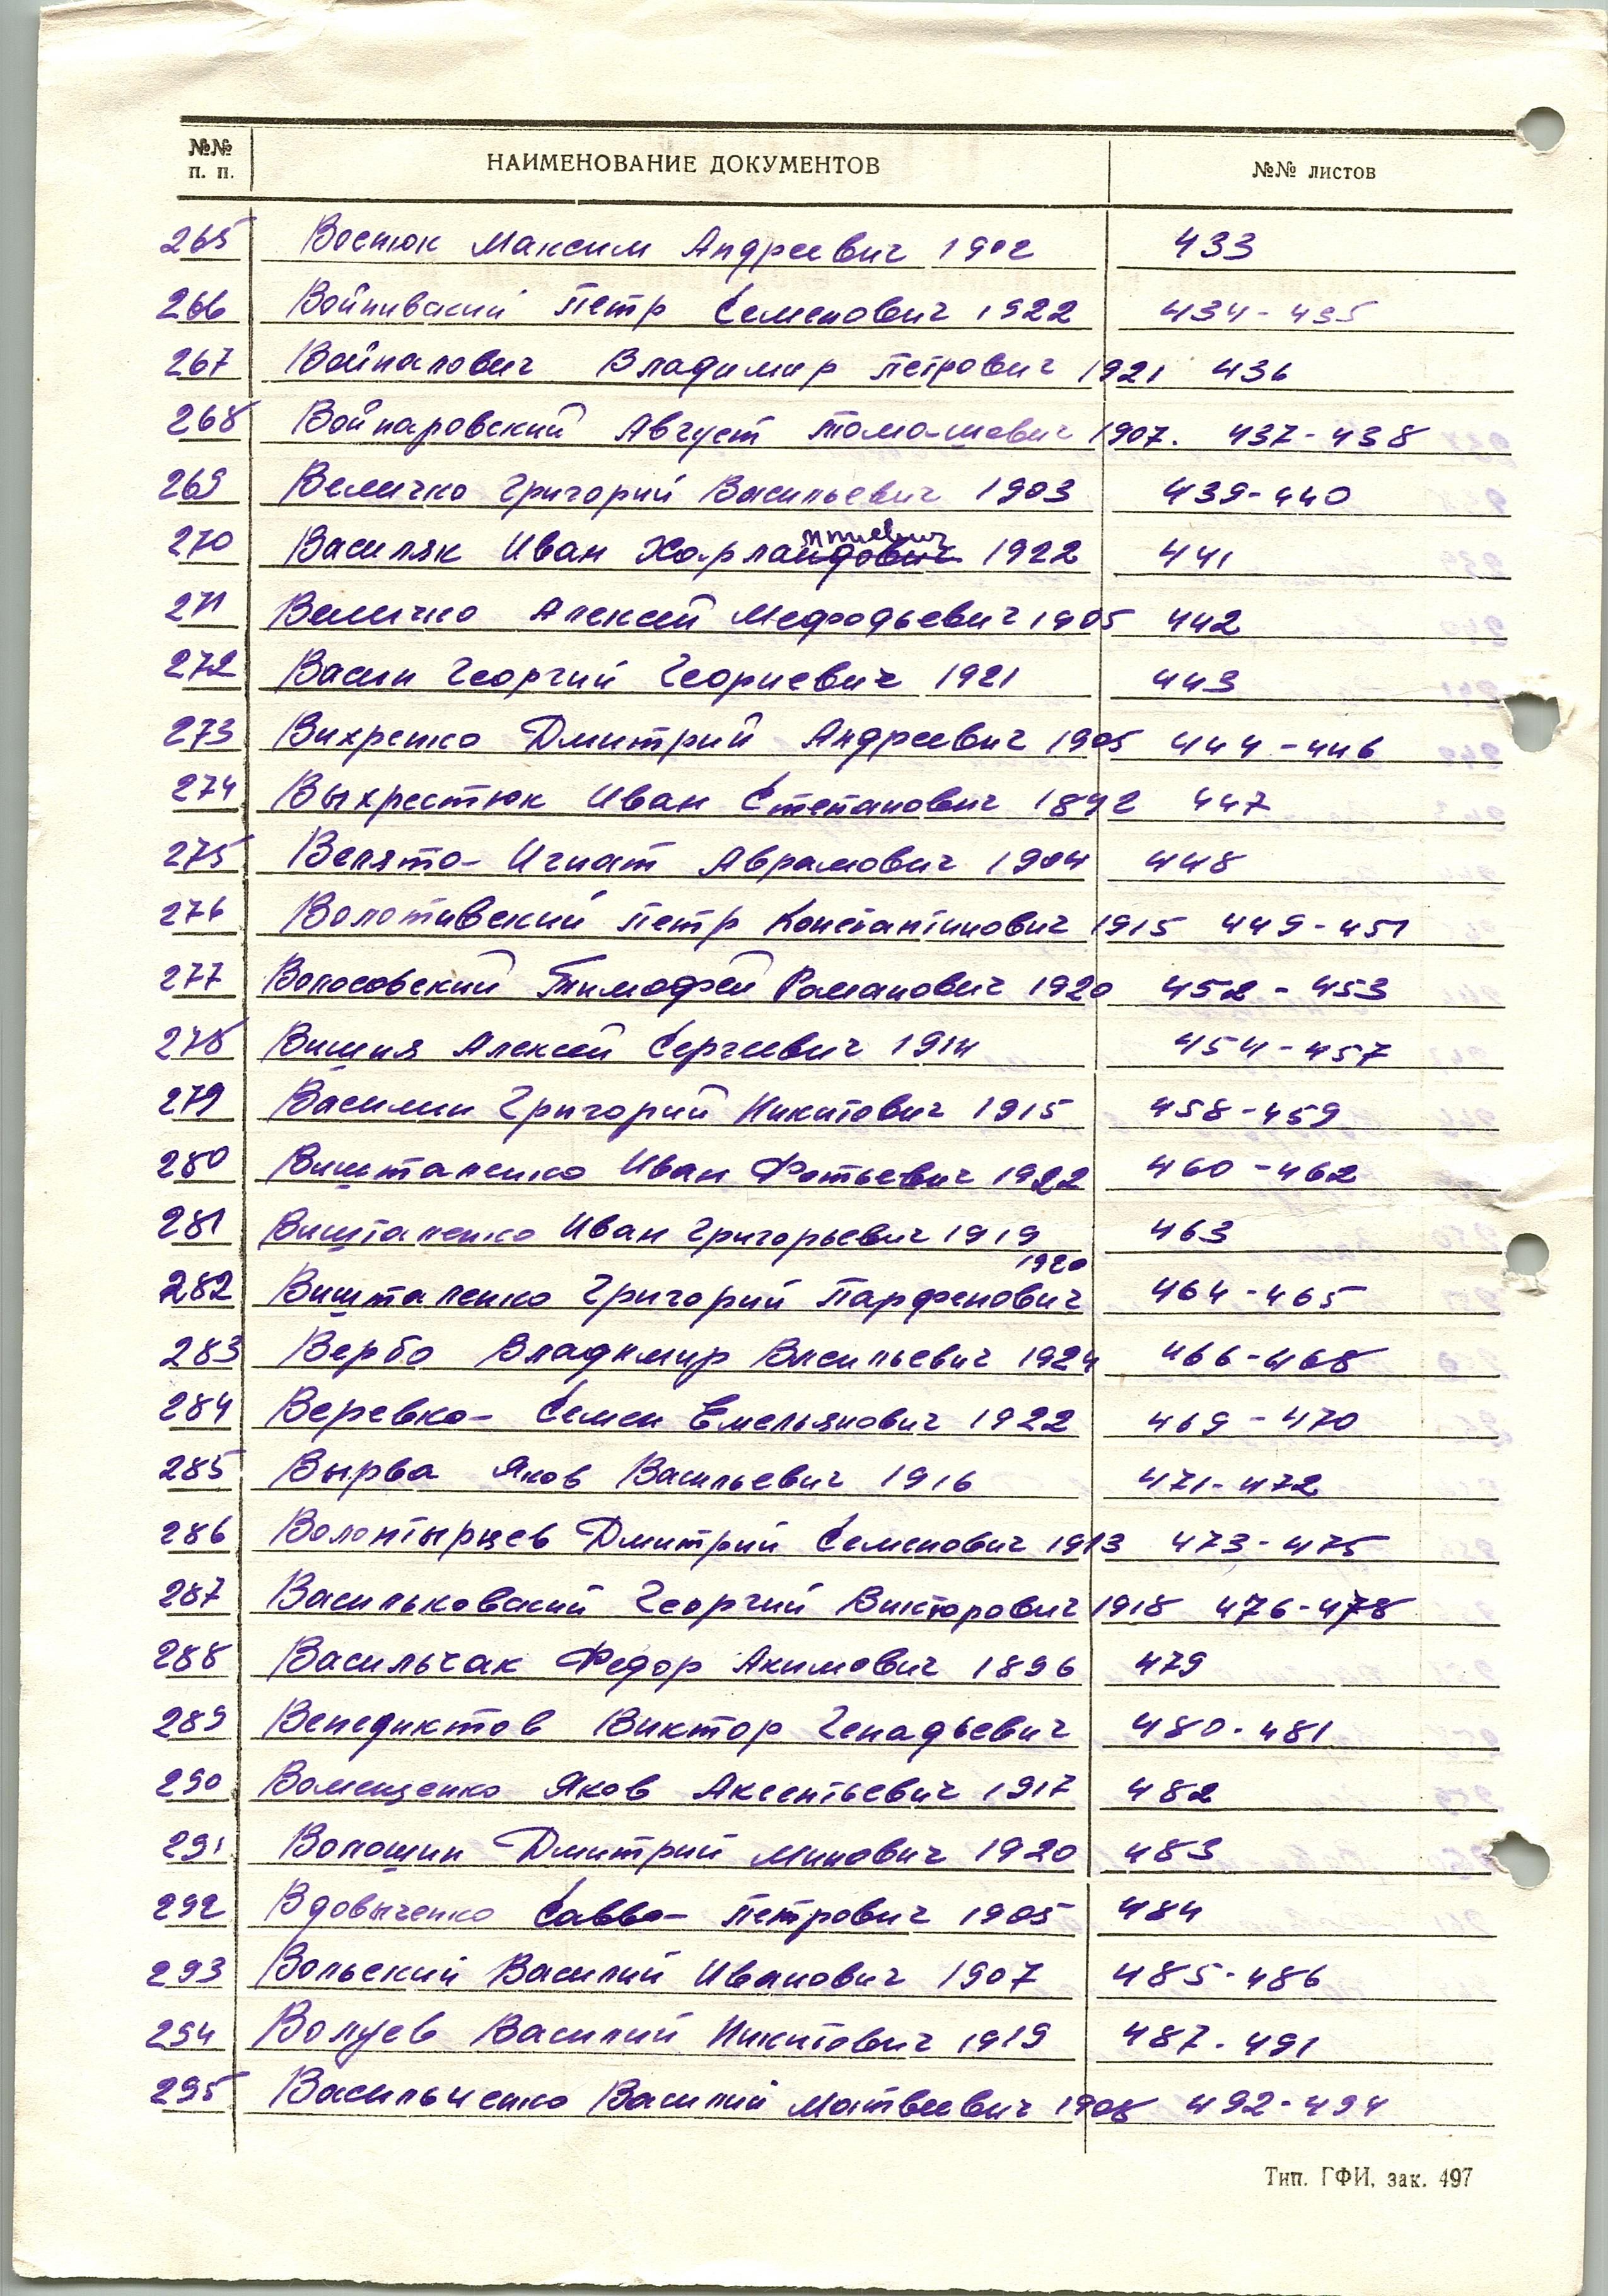 №№ п. п. НАИМЕНОВАНИЕ ДОКУМЕНТОВ №№ листов
265 Востюк Максим Андреевич 1902 433
266 Войнивский Петр Семенович 1922 434-435
267 Войналович Владимир Петрович 1921 436
268 Войнаровский Август Томашевич 1907. 437-438
269 Величко Григорий Васильевич 1903 439-440
270 Василяк Иван 1922 441
271 Величко Алексей Мефодьевич 1905 442
272 Васин Георгий Георгиевич 1921 443
273 Вихренко Дмитрий Андреевич 1905 444-446
274 Выхрестюк Иван Степанович 1892 447
275 Велята Игнат Аврамович 1904 448
276 Волотивский Петр Константинович 1915 449-451
277 Волосовский Тимофей Романович 1920 452-453
278 Вишня Алексей Сергеевич 1914 454-457
279 Василин Григорий Никитович 1915 458-459
280 Вишталенко Иван Фотьевич 1922 460-462
281 Вишталенко Иван Григорьевич 1919 463
282 Вишталенко Григорий Парфенович 1920 464-465
283 Верба Владимир Васильевич 1924 466-468
284 Веревка Семен Емельянович 1922 469-470
285 Вырва Яков Васильевич 1916 471-472
286 Волонтырцев Дмитрий Семенович 1913 473-475
287 Васильковский Георгий Викторович 1918 476-478
288 Васильчак Федор Акимович 1896 479
289 Венедиктов Виктор Генадьевич 480-481
290 Яков Аксентьевич 1917 482
291 Волошин Дмитрий Минович 1920 483
292 Вдовыченко Савва Петрович 1905 484
293 Вольский Василий Иванович 1907 485-486
294 Волуев Василий Никитович 1919 487-491
295 Васильченко Василий Матвеевич 1908 492-494
Тип. ГФИ, зак. 497